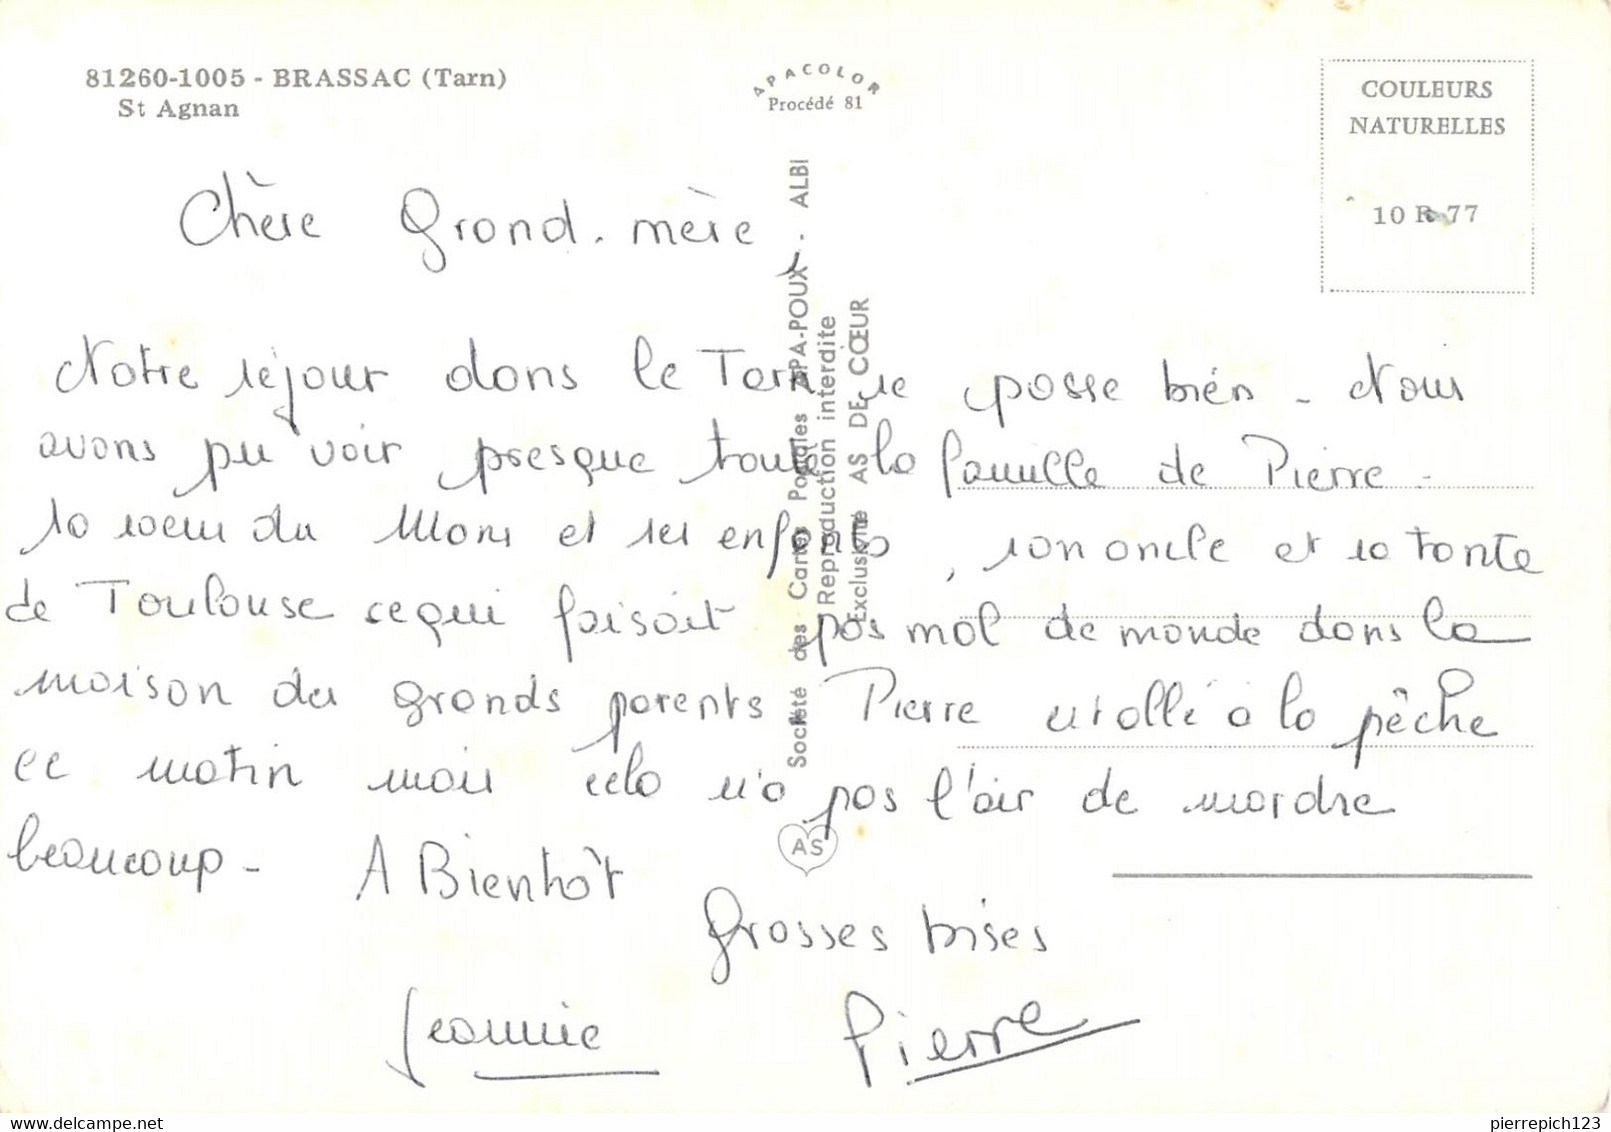 81260-1005 - BRASSAC (Tarn)
St Agnan
APACOLOR
Procédé 81
COULEURS
NATURELLES
10 R 77
Société des Cartes Postales APA-POUX - ALBI
Reproduction interdite
Exclusivité AS DE CŒUR
AS
Chère Grand-mère,
Notre séjour dans le Tarn se passe bien - Nous
avons pu voir presque toute la famille de Pierre -
sa soeur du Mans et ses enfants, son oncle et sa tante
de Toulouse ce qui faisait pas mal de monde dans la
maison des grands parents Pierre est allé à la pêche
ce matin mais cela n'a pas l'air de mordre
beaucoup - A Bientôt
Grosses bises
Jeannie Pierre
pierrepich123